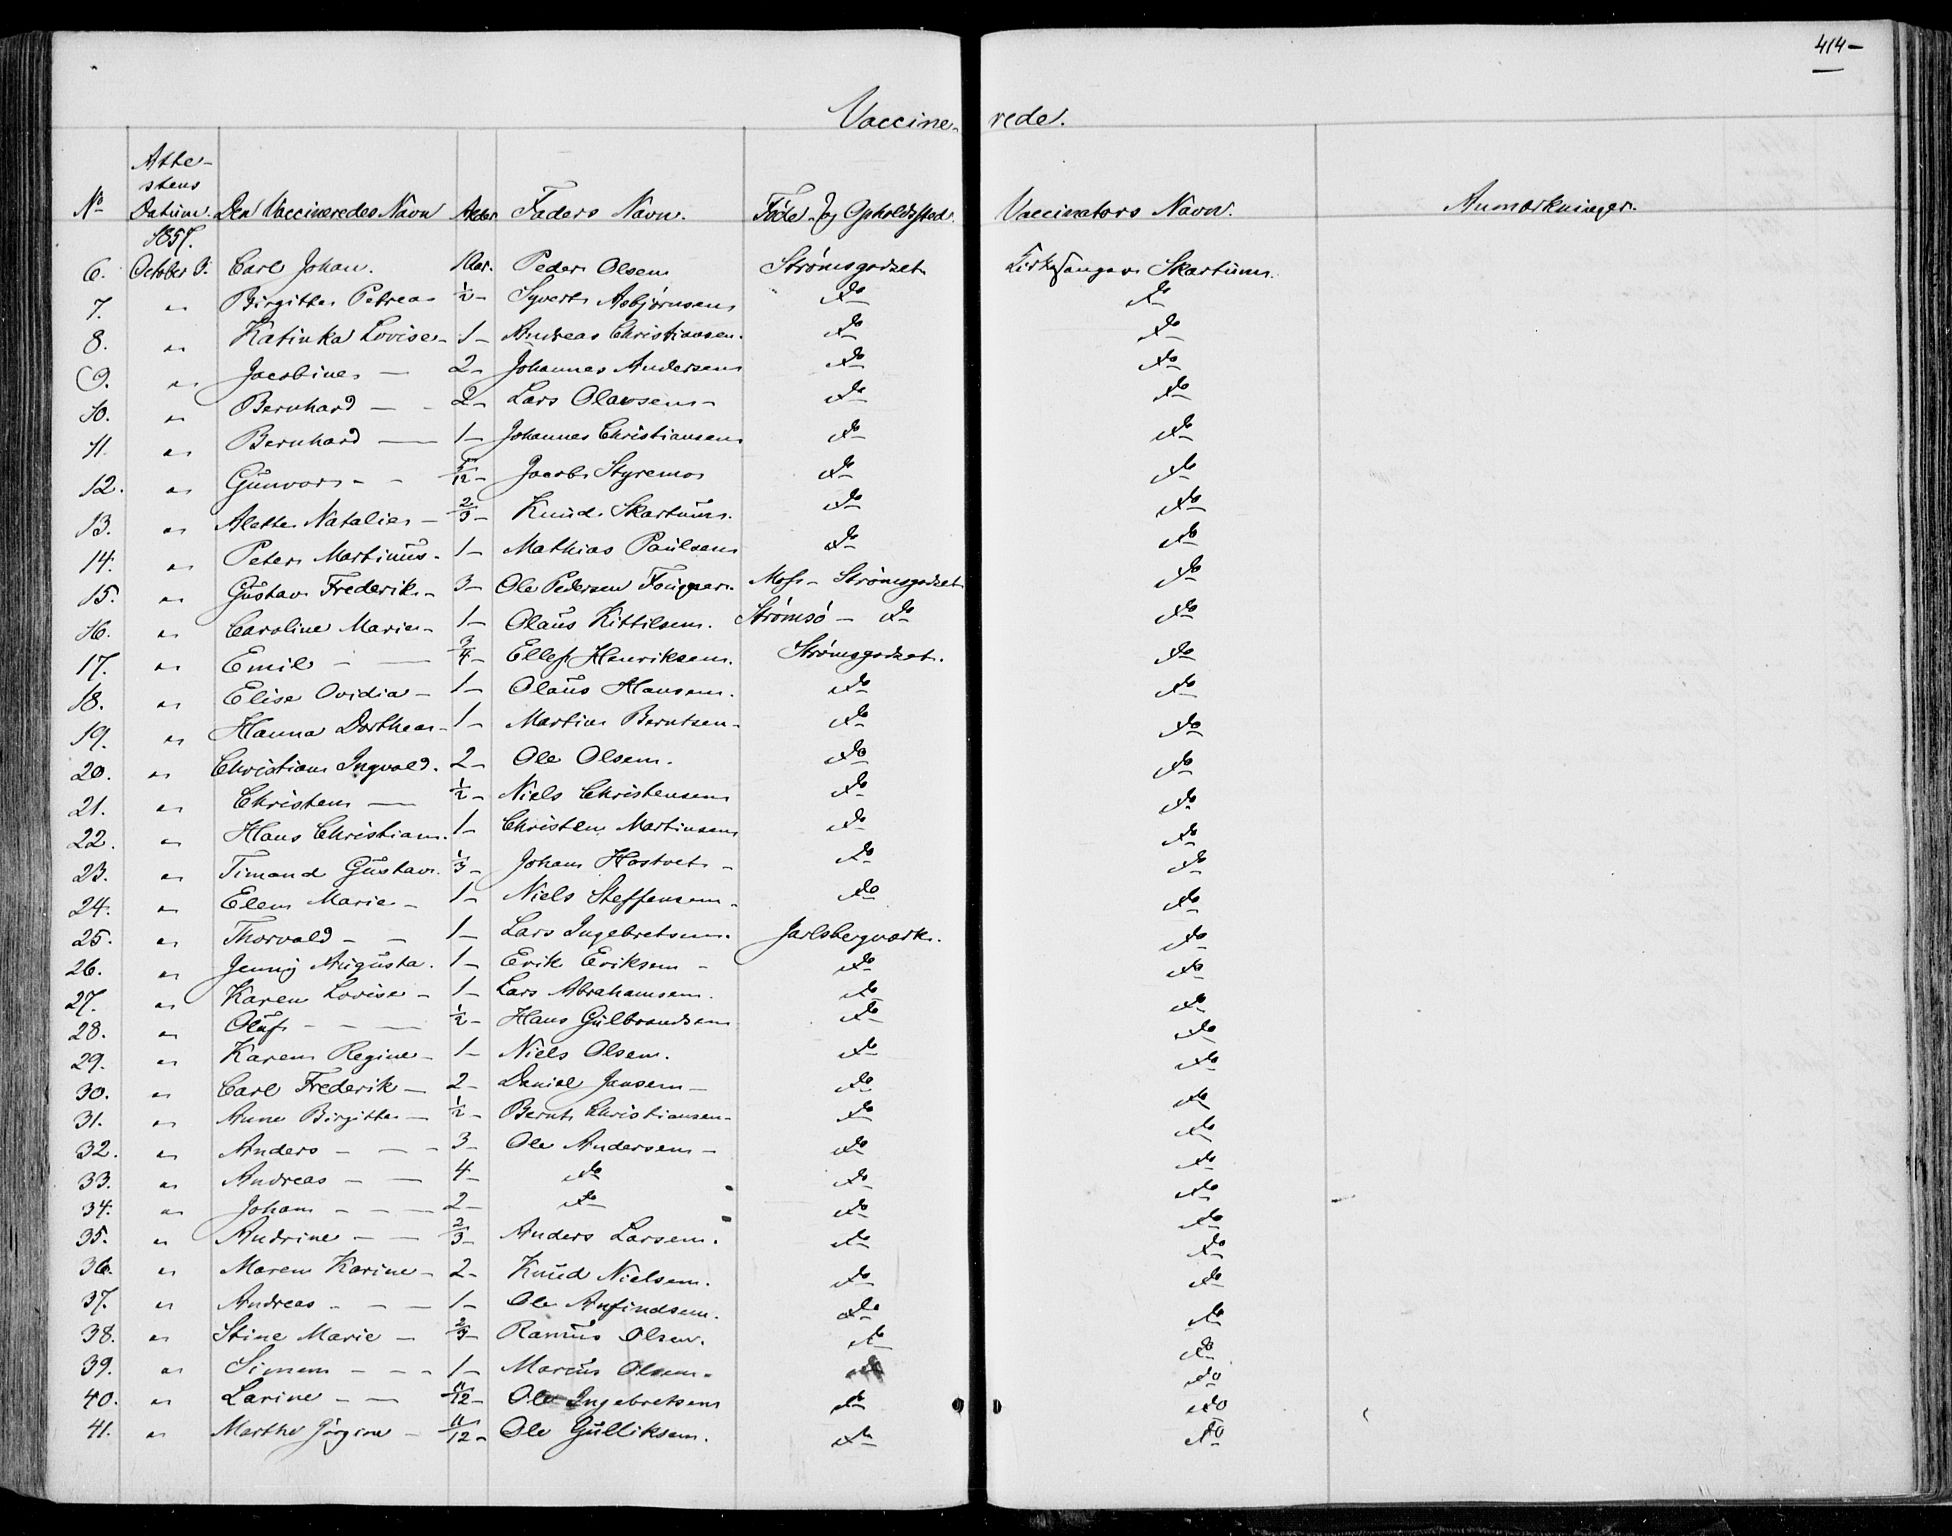 414-
Vaccine- rede.
No Atte- stens Datum. Den Vaccineredes Navn Alder. Faders Navn. Føde- og Opholdssted. Vaccinators Navn. Anmærkninger.
1857.
6. October 9. Carl Johan. 1 Aar. Peder Olsen Strømsgodset Kirkesanger Skartum.
7. " Birgitte Petrea 1/2 - Syvert Asbjørnsen do do
8. " Katinka Lovise - 1 - Andreas Christiansen. do do
9. " Jacobine - 2 - Johannes Andersen do do
10. " Bernhard - - 2 - Lars Olavsen - do do
11. " Bernhard - 1 - Johannes Christiansen do do
12. " Gunvor - - /12 - Jacob Styremo do do
13. " Alette Natalie - 2/3 - Knud Skartum. do do
14. " Peter Martinus - 1 - Mathias Paulsen do do
15. " Gustav Frederik - 3 - Ole Pedersen Moss - Strømsgodset do
16. " Caroline Marie - 1 - Olaus Kittilsen. Strømsø - do do
17. " Emil - - 3/4 - Ellef Henriksen. Strømsgodset. do
18. " Elise Ovidia - 1 - Olaus Hansen. do do
19. " Hanna Dorthea - 1 - Martin Berntsen - do do
20. " Christian Ingvald. 2 - Ole Olsen. do do
21. " Christen - 1/2 - Niels Christensen do do
22. " Hans Christian. 1 - Christen Martinsen do do
23. " Timand Gustav. 1/3 - Johan Hostvet - do do
24. " Elen Marie - 1 - Niels Steffensen - do do
25. " Thorvald - - 1 - Lars Ingebretsen. Jarlsbergværk. do
26. " Jenny Augusta. 1 - Erik Eriksen - do do
27. " Karen Lovise - 1 - Lars Abrahamsen. do do
28. " Oluf - - - 1/2 - Hans Gulbrandsen do do
29. " Karen Regine - 1 - Niels Olsen. do do
30. " Carl Frederik - 2 - Daniel Jansen - do do
31. " Anne Birgitte - 1/2 - Bernt Christiansen - do do
32. " Anders - - - 3 - Ole Andersen - do do
33. " Andreas - - 4 - do do do
34. " Johan - - - 2 - do do do
35. " Andrine - - 2/3 - Anders Larsen. do do
36. " Maren Karine - 2 - Knud Nielsen. do do
37. " Andreas - - - 1 - Ole Anfindsen. do do
38. " Stine Marie - 2/3 - Ramus Olsen. do do
39. " Simen - - - 1 - Marcus Olsen - do do
40. " Larine - - /12 - Ole Ingebretsen do do
41. " Marthe Jørgine - 11/12 - Ole Gulliksen. do do